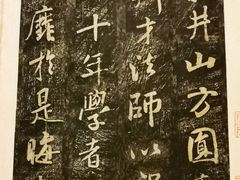 井山方圓
才法師以
十年學者
靡於是晦